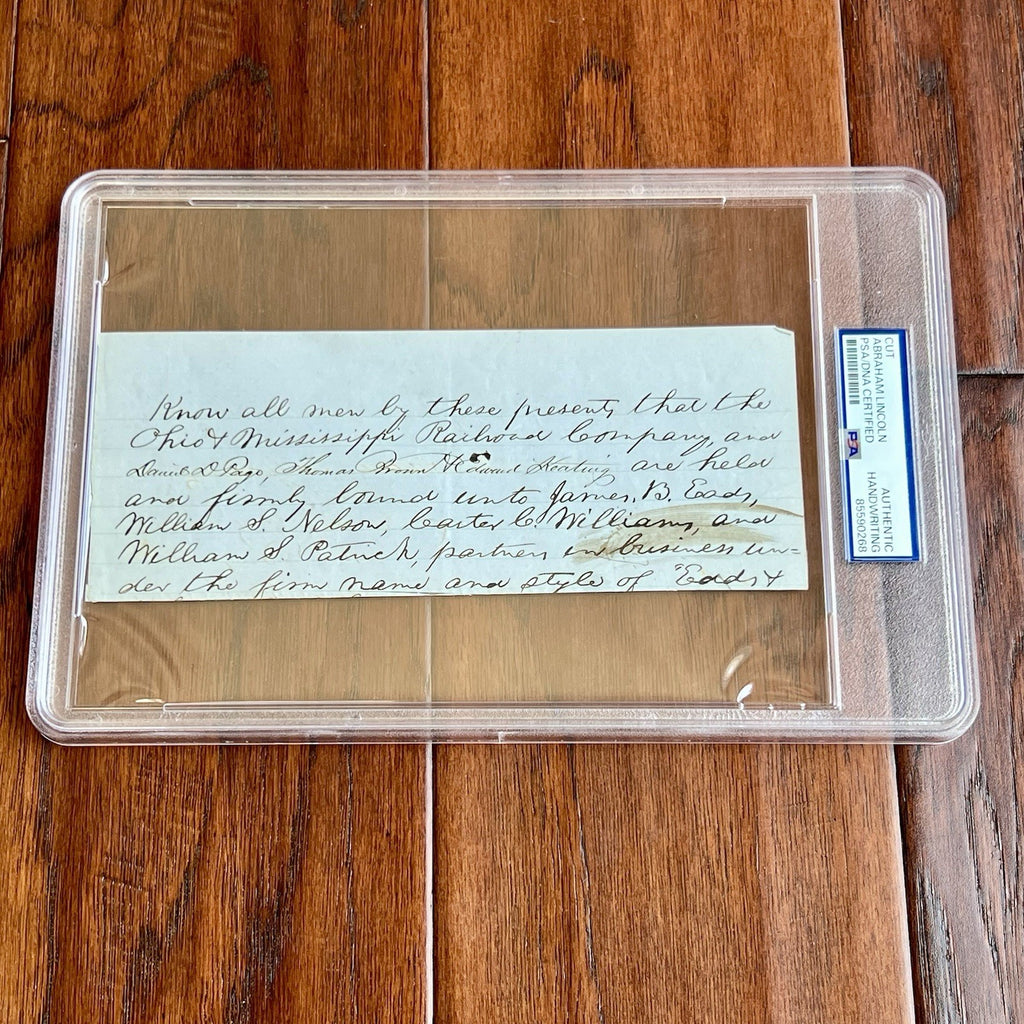 Know all men by these presents that the
Ohio & Mississippi Railroad Company, and
Daniel D Page, Thomas Brown & Edward Keating are held
and firmly bound unto James, B. Eads,
William S. Nelson, Carter C. Williams, and
William S. Patrick, partners in business un=
der the firm name and style of "Eads &
CUT
ABRAHAM LINCOLN
PSA/DNA CERTIFIED
PSA
AUTHENTIC
HANDWRITING
85590268